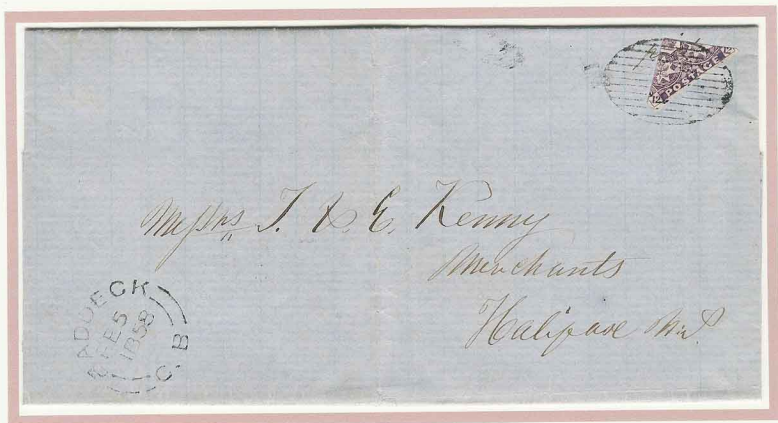 POSTAGE
Messrs T. & E. Kenny
Merchants
Halifax N.S.
BADDECK
FE 5
1858
C.B